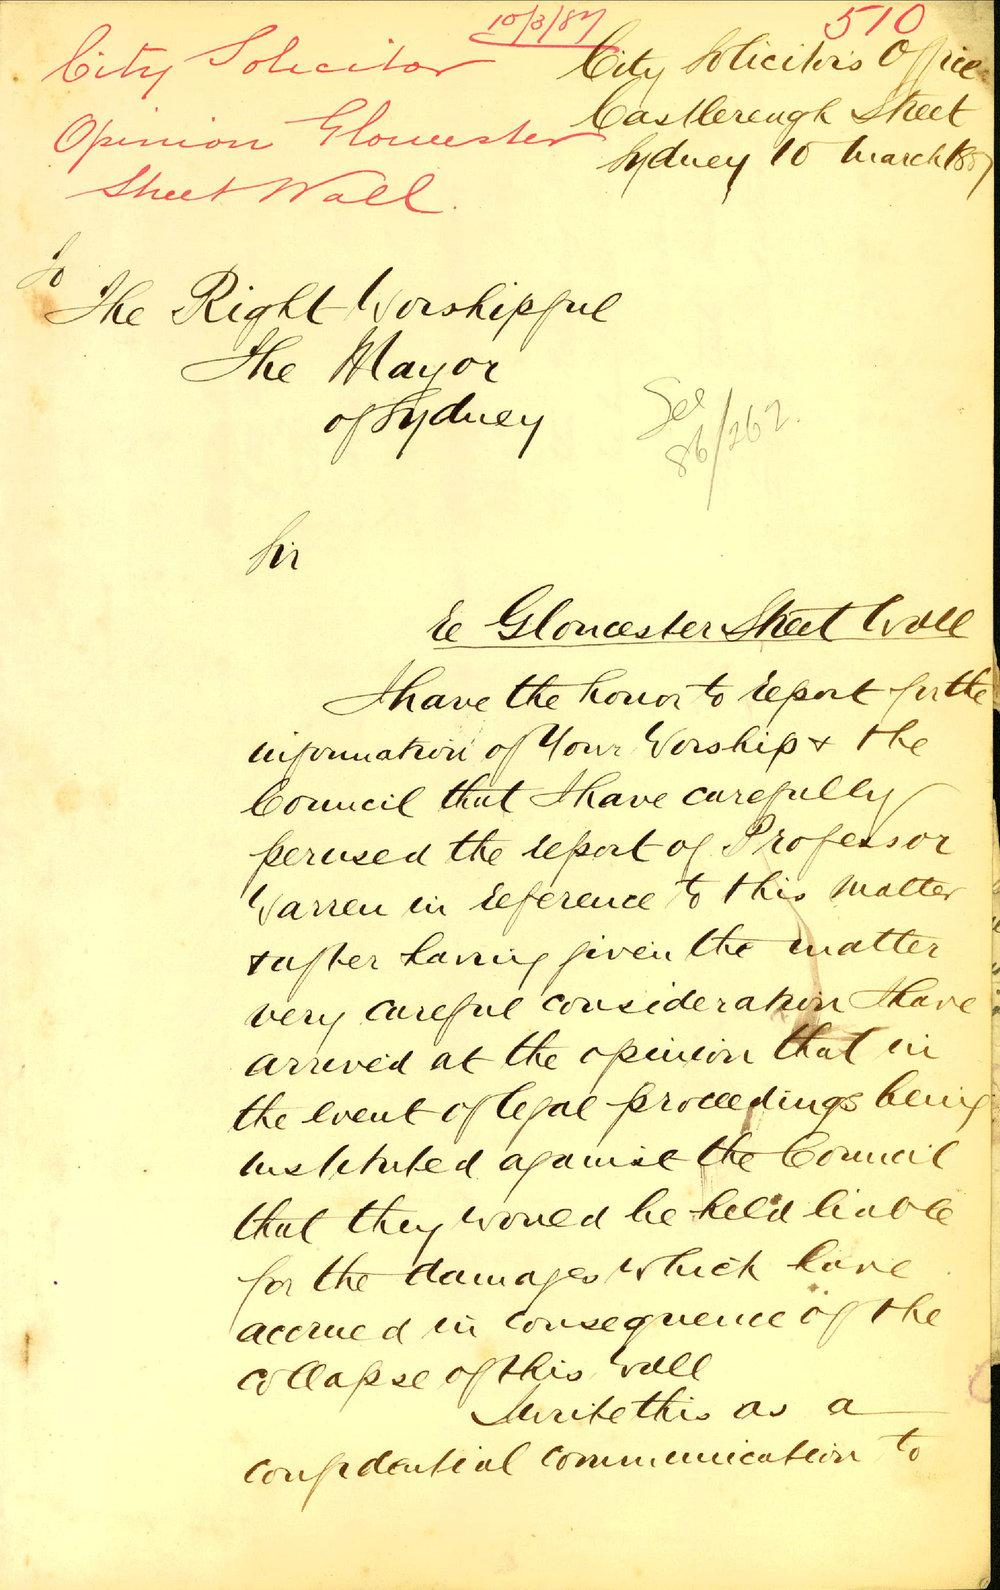 10/3/87
510
City Solicitor
Opinion Gloucester
Street Wall.
City Solicitor's Office
Castlereagh Street
Sydney 10 March 1887
To
The Right Worshipful
The Mayor
of Sydney
See
86/262.
Sir
re Gloucester Street Wall
I have the honor to report for the
information of Your Worship & the
Council that I have carefully
perused the report of Professor
Warren in reference to this matter
& after having given the matter
very careful consideration I have
arrived at the opinion that in
the event of legal proceedings being
instituted against the Council
that they would be held liable
for the damages which have
accrued in consequence of the
collapse of this Wall
I write this as a
confidential communication to